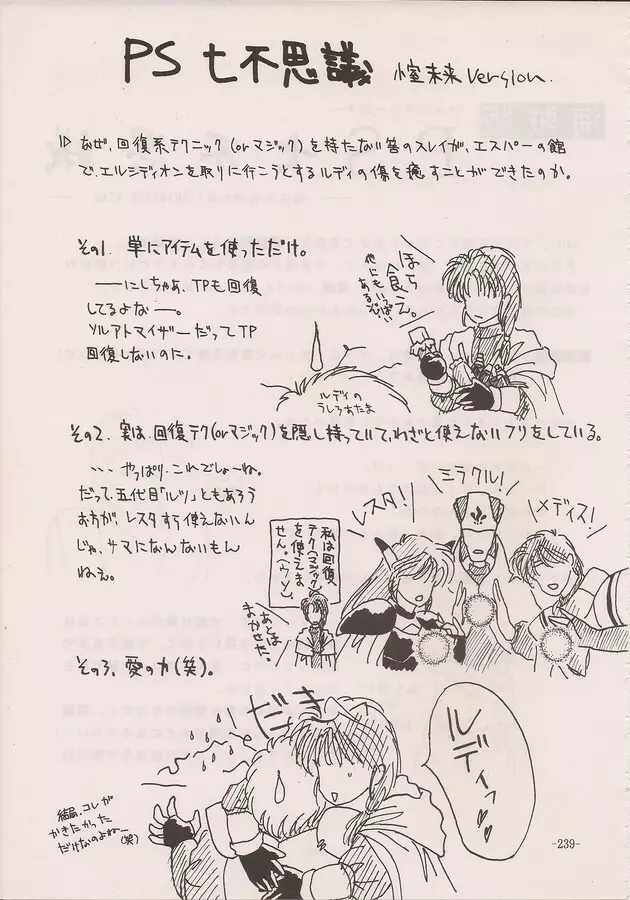 PS 七不思議
未来 version.
なぜ、回復系テクニック(orマジック)を持たない筈のスレイが、エスパーの館
で、エルシディオンを取りに行こうとするルディの傷を癒すことができたのか。
その1. 単にアイテムを使っただけ。
——にしちゃあ、TPも回復
してるよな—。
ソルアトマイザーだってTP
回復しないのに。
ほら
食らえ。
他にもいっぱい
あるぞい
ルディの
うしろあたま
その2. 実は、回復テク(orマジック)を隠し持っていて、わざと使えないフリをしている。
・・・やっぱり、これでしょーね。
だって、五代目「ルツ」ともあろう
お方が、レスタすら使えないん
じゃ、サマになんないもん
ねぇ。
レスタ!
ミラクル!
メディス!
私は回復
テク(マジック)
を使えま
せん。(ウソ)
あとは
まかせた。
その3. 愛の力(笑)。
だき
ルディっ♥♥
結局、コレが
かきたかった
だけなのよねー
(笑)
-239-